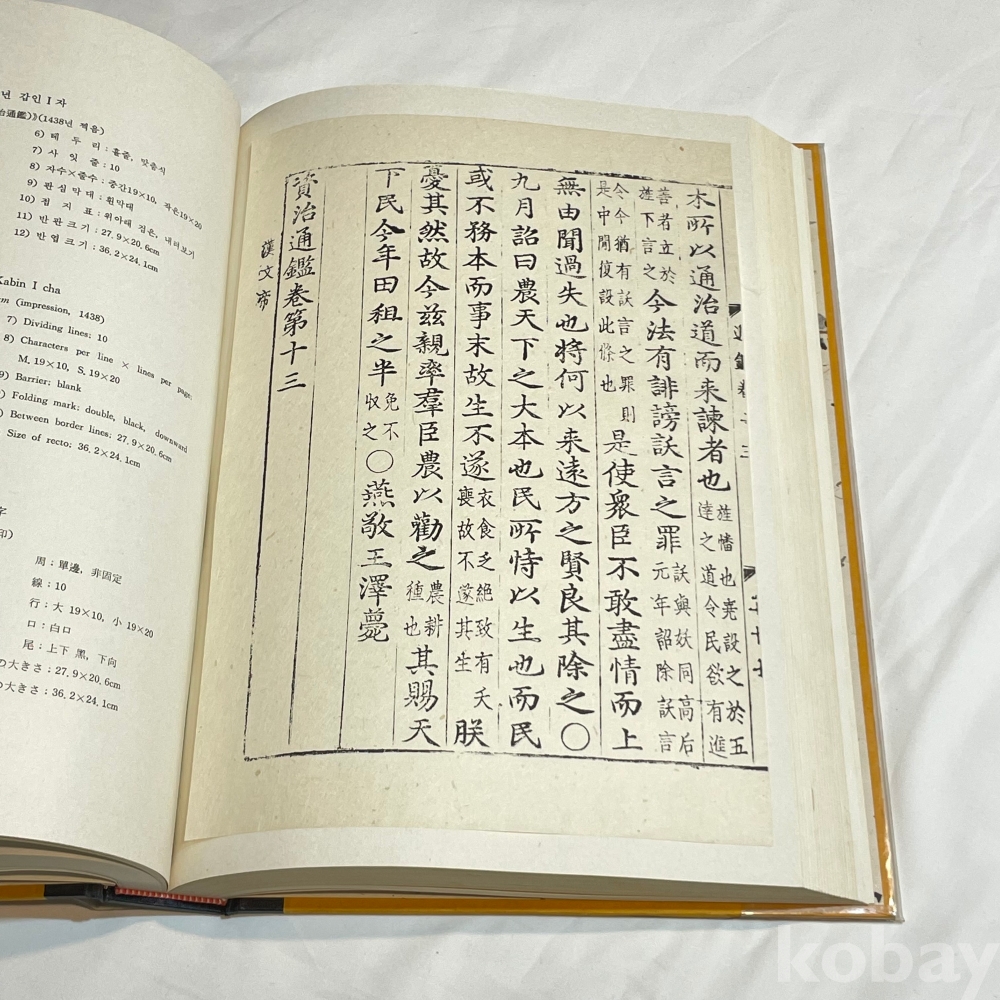 년 갑인 I 자
治通鑑)》(1438년 찍음)
6) 테 두 리 : 홑줄, 맞춤식
7) 사 잇 줄 : 10
8) 자수×줄수 : 중간19×10, 작은19×20
9) 판심막대 : 흰막대
10) 접 지 표 : 위아래 검은, 내려보기
11) 반판크기 : 27.9×20.6cm
12) 반엽크기 : 36.2×24.1cm
Kabin I cha
(impression, 1438)
7) Dividing lines; 10
8) Characters per line × lines per page;
M. 19×10, S. 19×20
9) Barrier; blank
) Folding mark; double, black, downward
) Between border lines; 27.9×20.6cm
Size of recto; 36.2×24.1cm
字
印)
周 ; 單邊, 非固定
線 ; 10
行 ; 大 19×10, 小 19×20
口 ; 白口
尾 ; 上下 黑, 下向
の大きさ ; 27.9×20.6cm
の大きさ ; 36.2×24.1cm
木所以通治道而来諫者也旌幡也堯設之於五達之道令民欲有進
善者立於旌下言之今法有誹謗訞言之罪訞與妖同高后元年詔除訞言
令今猶有訞言之罪則是中間復設此條也是使衆臣不敢盡情而上
無由聞過失也将何以来遠方之賢良其除之〇
九月詔曰農天下之大本也民所恃以生也而民
或不務本而事末故生不遂衣食乏絶致有夭喪故不遂其生朕
憂其然故今兹親率羣臣農以勸之農耕種也其賜天
下民今年田租之半免不收之〇燕敬王澤薨
資治通鑑卷第十三
漢文帝
kobay